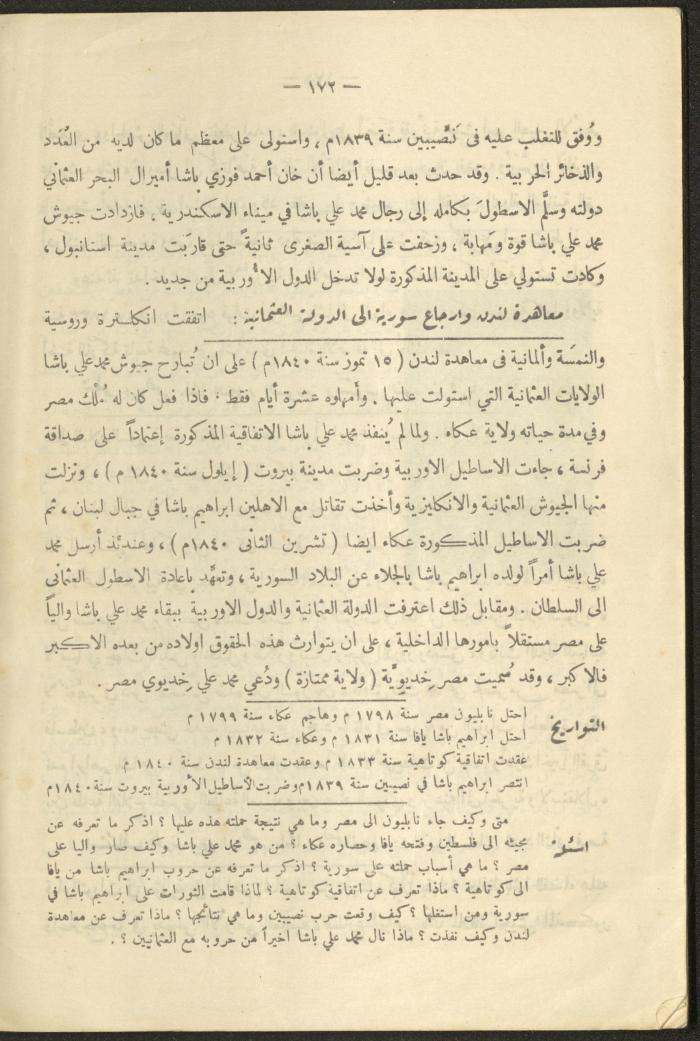 — ١٧٢ —
ووُفق للتغلب عليه فى نَصَّيبين سنة ١٨٣٩م ، واستولى على معظم ما كان لديه من العُدَد
والذخائر الحربية . وقد حدث بعد قليل أيضا أن خان أحمد فوزي باشا أميرال البحر العثماني
دولته وسلَّم الاسطولَ بكامله إلى رجال محمد علي باشا في ميناء الاسكندرية . فازدادت جيوش
محمد علي باشا قوة ومَهابة ، وزحفت على آسية الصغرى ثانيةً حتى قاربَت مدينة استانبول ،
وكادت تستولي على المدينة المذكورة لولا تدخل الدول الأوربية من جديد .
معاهدة لندن وارجاع سورية الى الدولة العثمانية : اتفقت انكلـترة وروسية
والنمسَة وألمانية فى معاهدة لندن ( ١٥ تموز سنة ١٨٤٠م ) على ان تُبارح جيوش محمد علي باشا
الولايات العثمانية التي استولت عليها . وأمهلوه عشرة أيام فقط . فاذا فعل كان له مُلك مصر
وفي مدة حياته ولاية عكاء . ولما لم يُنفذ محمد علي باشا الاتفاقية المذكورة إعتماداً على صداقة
فرنسة ، جاءت الاساطيل الاوربية وضربت مدينة بيروت ( إيلول سنة ١٨٤٠ م ) ، ونزلت
منها الجيوش العثمانية والانكليزية وأخذت تقاتل مع الاهلين ابراهيم باشا في جبال لبنان ، ثم
ضربت الاساطيل المذكورة عكاء ايضا ( تشرين الثانى ١٨٤٠م ) ، وعندئذ أرسل محمد
علي باشا أمراً لولده ابراهيم باشا بالجلاء عن البلاد السورية ، وتعهَّد باعادة الاسطول العثمانى
الى السلطان . ومقابل ذلك اعترفت الدولة العثمانية والدول الاوربية ببقاء محمد علي باشا والياً
على مصر مستقلاً بامورها الداخلية ، على ان يتوارث هذه الحقوق اولاده من بعده الاكبر
فالاكبر ، وقد سُميت مصر خِديويَّة ( ولاية ممتازة ) ودُعي محمد علي خِديوي مصر .
التواريخ
احتل نابليون مصر سنة ١٧٩٨ م وهاجم عكاء سنة ١٧٩٩ م
احتل ابراهيم باشا يافا سنة ١٨٣١ م وعكاء سنة ١٨٣٢ م
عقدت اتفاقية كوتاهية سنة ١٨٣٣ م وعقدت معاهدة لندن سنة ١٨٤٠ م
انتصر ابراهيم باشا في نصيبين سنة ١٨٣٩م وضربت الأساطيل الأوربية بيروت سنة ١٨٤٠م
اسئلة
متى وكيف جاء نابليون الى مصر وما هي نتيجة حملته هذه عليها ؟ اذكر ما تعرفه عن
مجيئه الى فلسطين وفتحه يافا وحصاره عكاء ؟ من هو محمد علي باشا وكيف صار واليا على
مصر ؟ ما هي أسباب حملته على سورية ؟ اذكر ما تعرفه عن حروب ابراهيم باشا من يافا
الى كوتاهية ؟ ماذا تعرف عن اتفاقية كوتاهية ؟ لماذا قامت الثورات على ابراهيم باشا في
سورية ومن استغلها ؟ كيف وقعت حرب نصيبين وما هي نتائجها ؟ ماذا تعرف عن معاهدة
لندن وكيف نفذت ؟ ماذا نال محمد علي باشا اخيراً من حروبه مع العثمانيين ؟ .